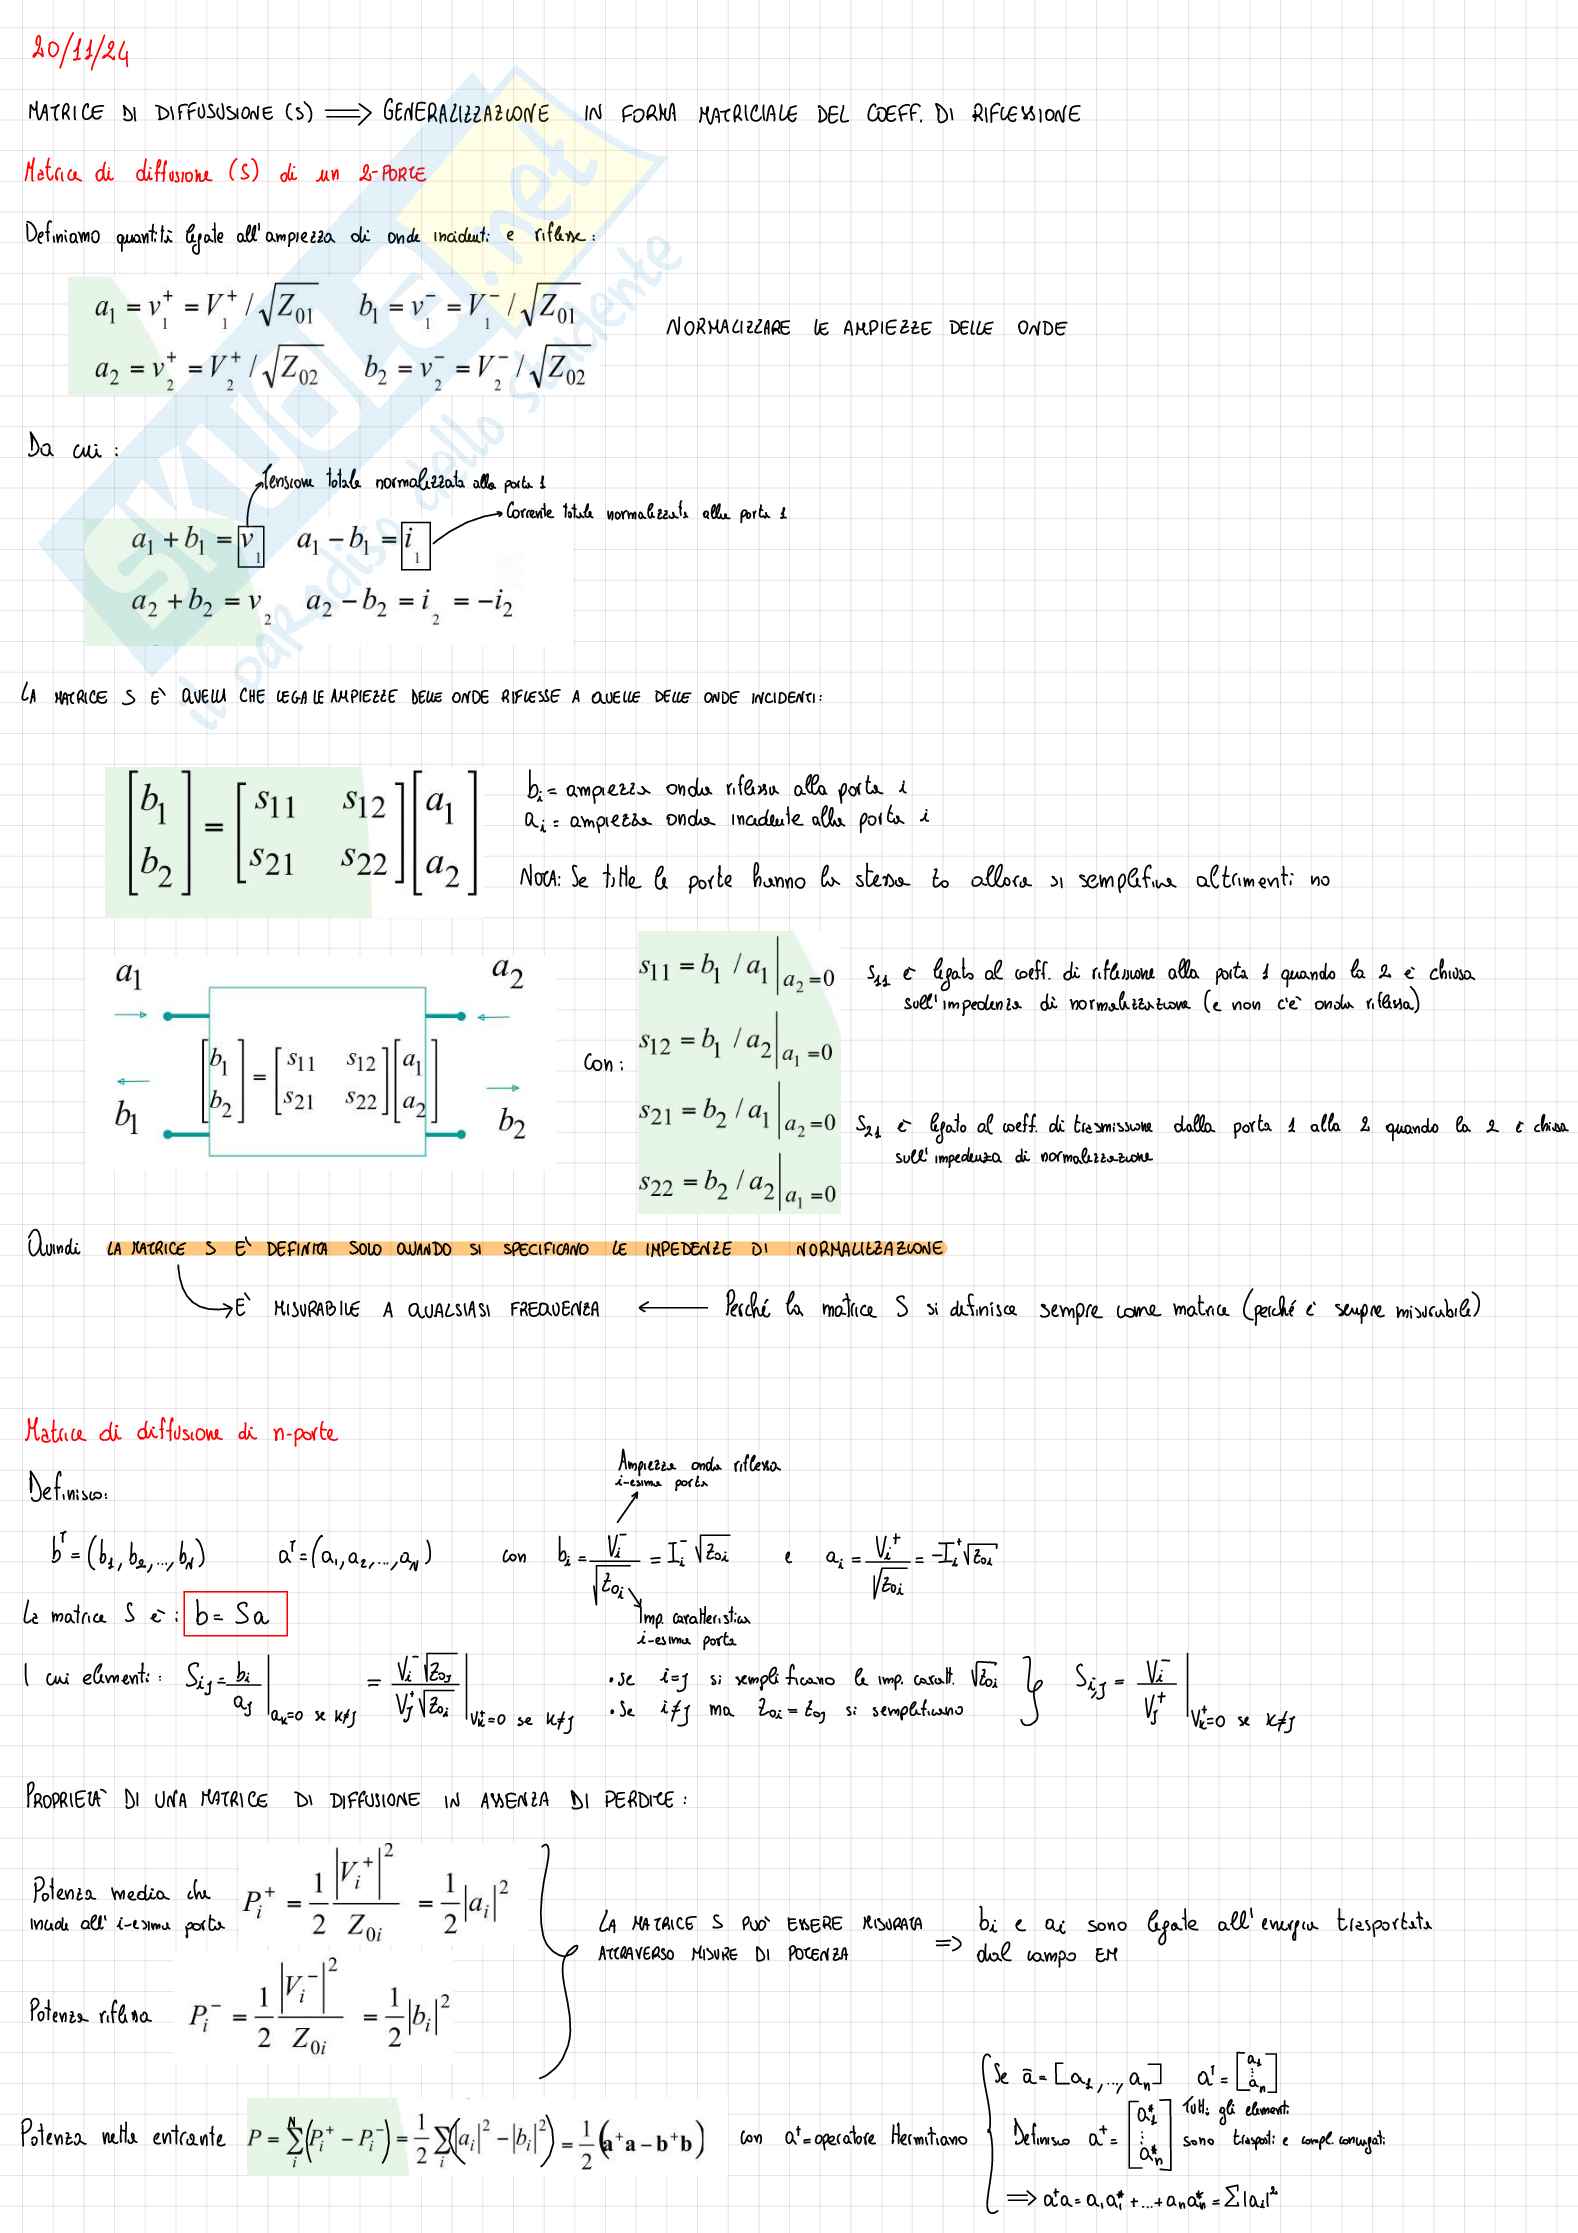 20/11/24
MATRICE DI DIFFUSUSIONE (S) ⟹ GENERALIZZAZIONE IN FORMA MATRICIALE DEL COEFF. DI RIFLESSIONE
Matrice di diffusione (S) di un 2-PORTE
Definiamo quantità legate all'ampiezza di onde incidenti e riflesse:
a₁ = v₁⁺ = V₁⁺ / √Z₀₁ b₁ = v₁⁻ = V₁⁻ / √Z₀₁
NORMALIZZARE LE AMPIEZZE DELLE ONDE
a₂ = v₂⁺ = V₂⁺ / √Z₀₂ b₂ = v₂⁻ = V₂⁻ / √Z₀₂
Da cui :
Tensione totale normalizzata alla porta 1
Corrente totale normalizzata alla porta 1
a₁ + b₁ = v₁ a₁ − b₁ = i₁
a₂ + b₂ = v₂ a₂ − b₂ = i₂ = −i₂
LA MATRICE S E' QUELLA CHE LEGA LE AMPIEZZE DELLE ONDE RIFLESSE A QUELLE DELLE ONDE INCIDENTI:
[b₁ b₂] = [s₁₁ s₁₂ s₂₁ s₂₂] [a₁ a₂]
bᵢ = ampiezza onda riflessa alla porta i
aᵢ = ampiezza onda incidente alla porta i
NOTA: Se tutte le porte hanno la stessa Z0 allora si semplifica altrimenti no
a₁ a₂
[b₁ b₂] = [s₁₁ s₁₂ s₂₁ s₂₂] [a₁ a₂]
b₁ b₂
Con :
s₁₁ = b₁ / a₁ |a₂=0
S₁₁ è legato al coeff. di riflessione alla porta 1 quando la 2 è chiusa
sull'impedenza di normalizzazione (e non c'è onda riflessa)
s₁₂ = b₁ / a₂ |a₁=0
s₂₁ = b₂ / a₁ |a₂=0
S₂₁ è legato al coeff. di trasmissione dalla porta 1 alla 2 quando la 2 è chiusa
sull'impedenza di normalizzazione
s₂₂ = b₂ / a₂ |a₁=0
Quindi LA MATRICE S E' DEFINITA SOLO QUANDO SI SPECIFICANO LE IMPEDENZE DI NORMALIZZAZIONE
E' MISURABILE A QUALSIASI FREQUENZA ⟵ Perché la matrice S si definisce sempre come matrice (perché è sempre misurabile)
Matrice di diffusione di n-porte
Ampiezza onda riflessa
i-esima porta
Definisco:
bᵀ = (b₁, b₂, ..., b_N) aᵀ = (a₁, a₂, ..., a_N) con bᵢ = Vᵢ⁻ / √Z₀ᵢ = Iᵢ⁻ √Z₀ᵢ e aᵢ = Vᵢ⁺ / √Z₀ᵢ = −Iᵢ⁺ √Z₀ᵢ
Imp. caratteristica
i-esima porta
La matrice S è : b = Sa
I cui elementi : Sᵢⱼ = bᵢ / aⱼ |aₖ=0 se K≠J = Vᵢ⁻ √Z₀ⱼ / Vⱼ⁺ √Z₀ᵢ |Vₖ⁺=0 se K≠J
• Se i=J si semplificano le imp. caratt. √Z₀ᵢ
• Se i≠J ma Z₀ᵢ = Z₀ⱼ si semplificano
Sᵢ,ⱼ = Vᵢ⁻ / Vⱼ⁺ |Vₖ⁺=0 se K≠J
PROPRIETA' DI UNA MATRICE DI DIFFUSIONE IN ASSENZA DI PERDITE :
Potenza media che
incide all'i-esima porta
Pᵢ⁺ = 1/2 |Vᵢ⁺|² / Z₀ᵢ = 1/2 |aᵢ|²
LA MATRICE S PUO' ESSERE MISURATA
ATTRAVERSO MISURE DI POTENZA
⟹ bi e ai sono legate all'energia trasportata
dal campo EM
Potenza riflessa Pᵢ⁻ = 1/2 |Vᵢ⁻|² / Z₀ᵢ = 1/2 |bᵢ|²
Potenza netta entrante P = Σᵢᴺ (Pᵢ⁺ − Pᵢ⁻) = 1/2 Σᵢ (|aᵢ|² − |bᵢ|²) = 1/2 (a⁺a − b⁺b) con a⁺ = operatore Hermitiano
Se ā = [a₁, ..., aₙ] aᵀ = [a₁ ⋮ aₙ]
Definisco a⁺ = [a₁* ⋮ aₙ*] Tutti gli elementi
sono trasposti e compl. coniugati
⟹ a⁺a = a₁a₁* + ... + aₙaₙ* = Σ|aᵢ|²
SKUOLA.net
il paradiso dello studente